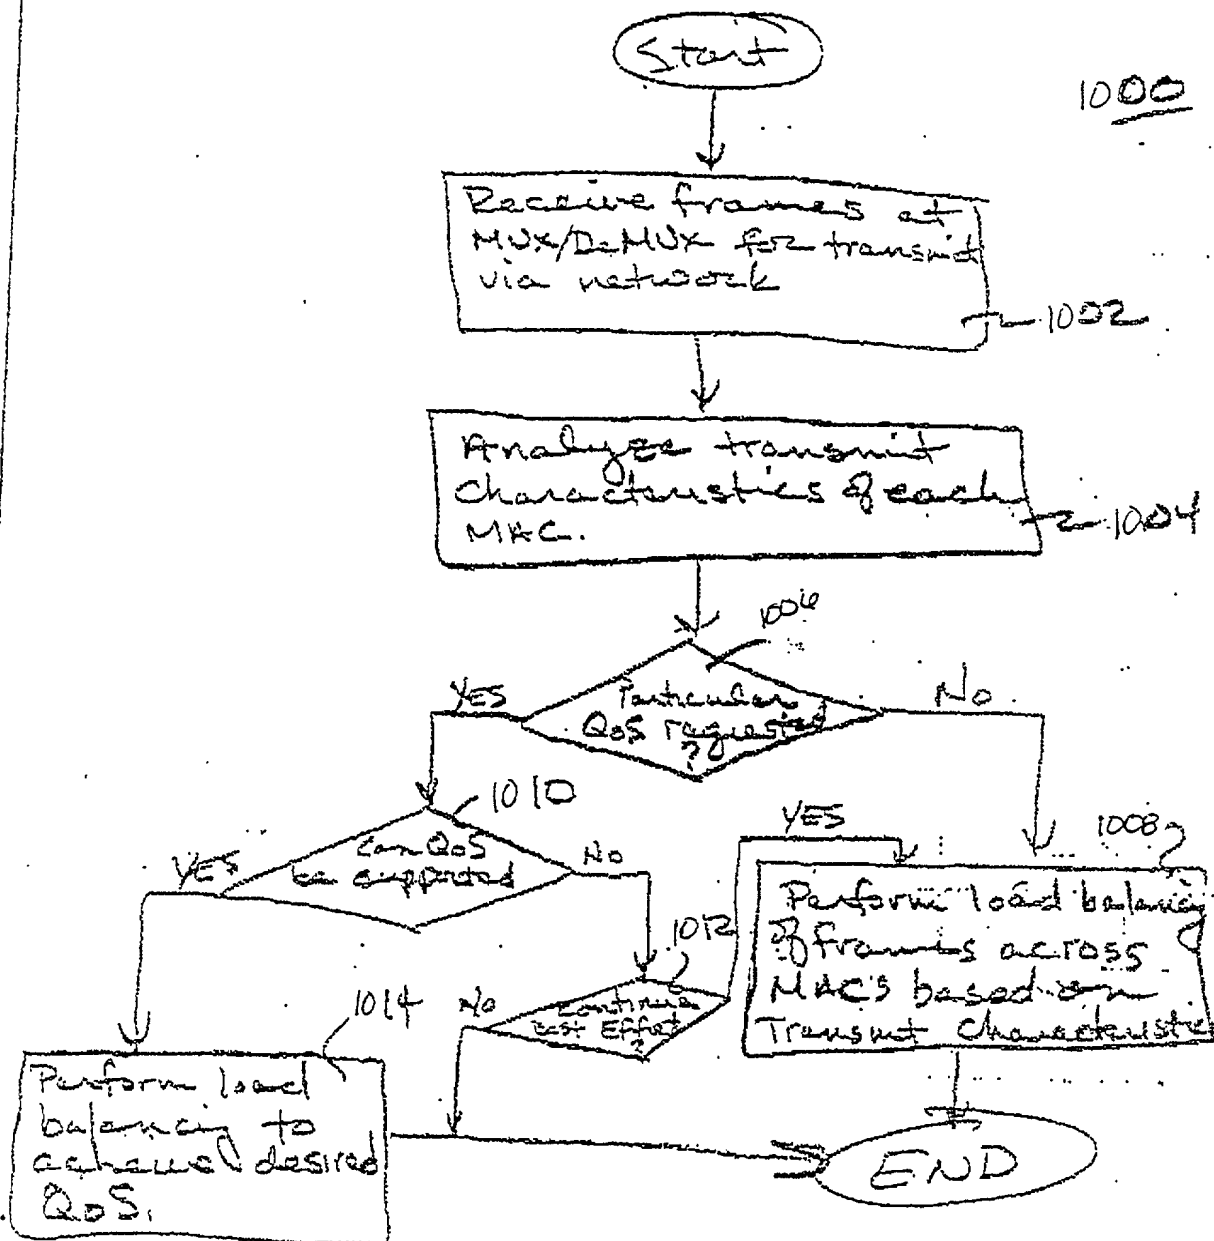 Start
1000
Receive frames at
MUX/DeMUX for transmit
via network
1002
Analyze transmit
characteristics of each
MAC.
1004
1006
YES
Particular
QoS requested
?
No
1010
YES
Can QoS
be supported
No
1012
YES
1008
Perform load balancing
of frames across
MAC's based on
Transmit Characteristic
No
Continue
Best Effort
?
1014
Perform load
balancing to
achieve desired
QoS.
END